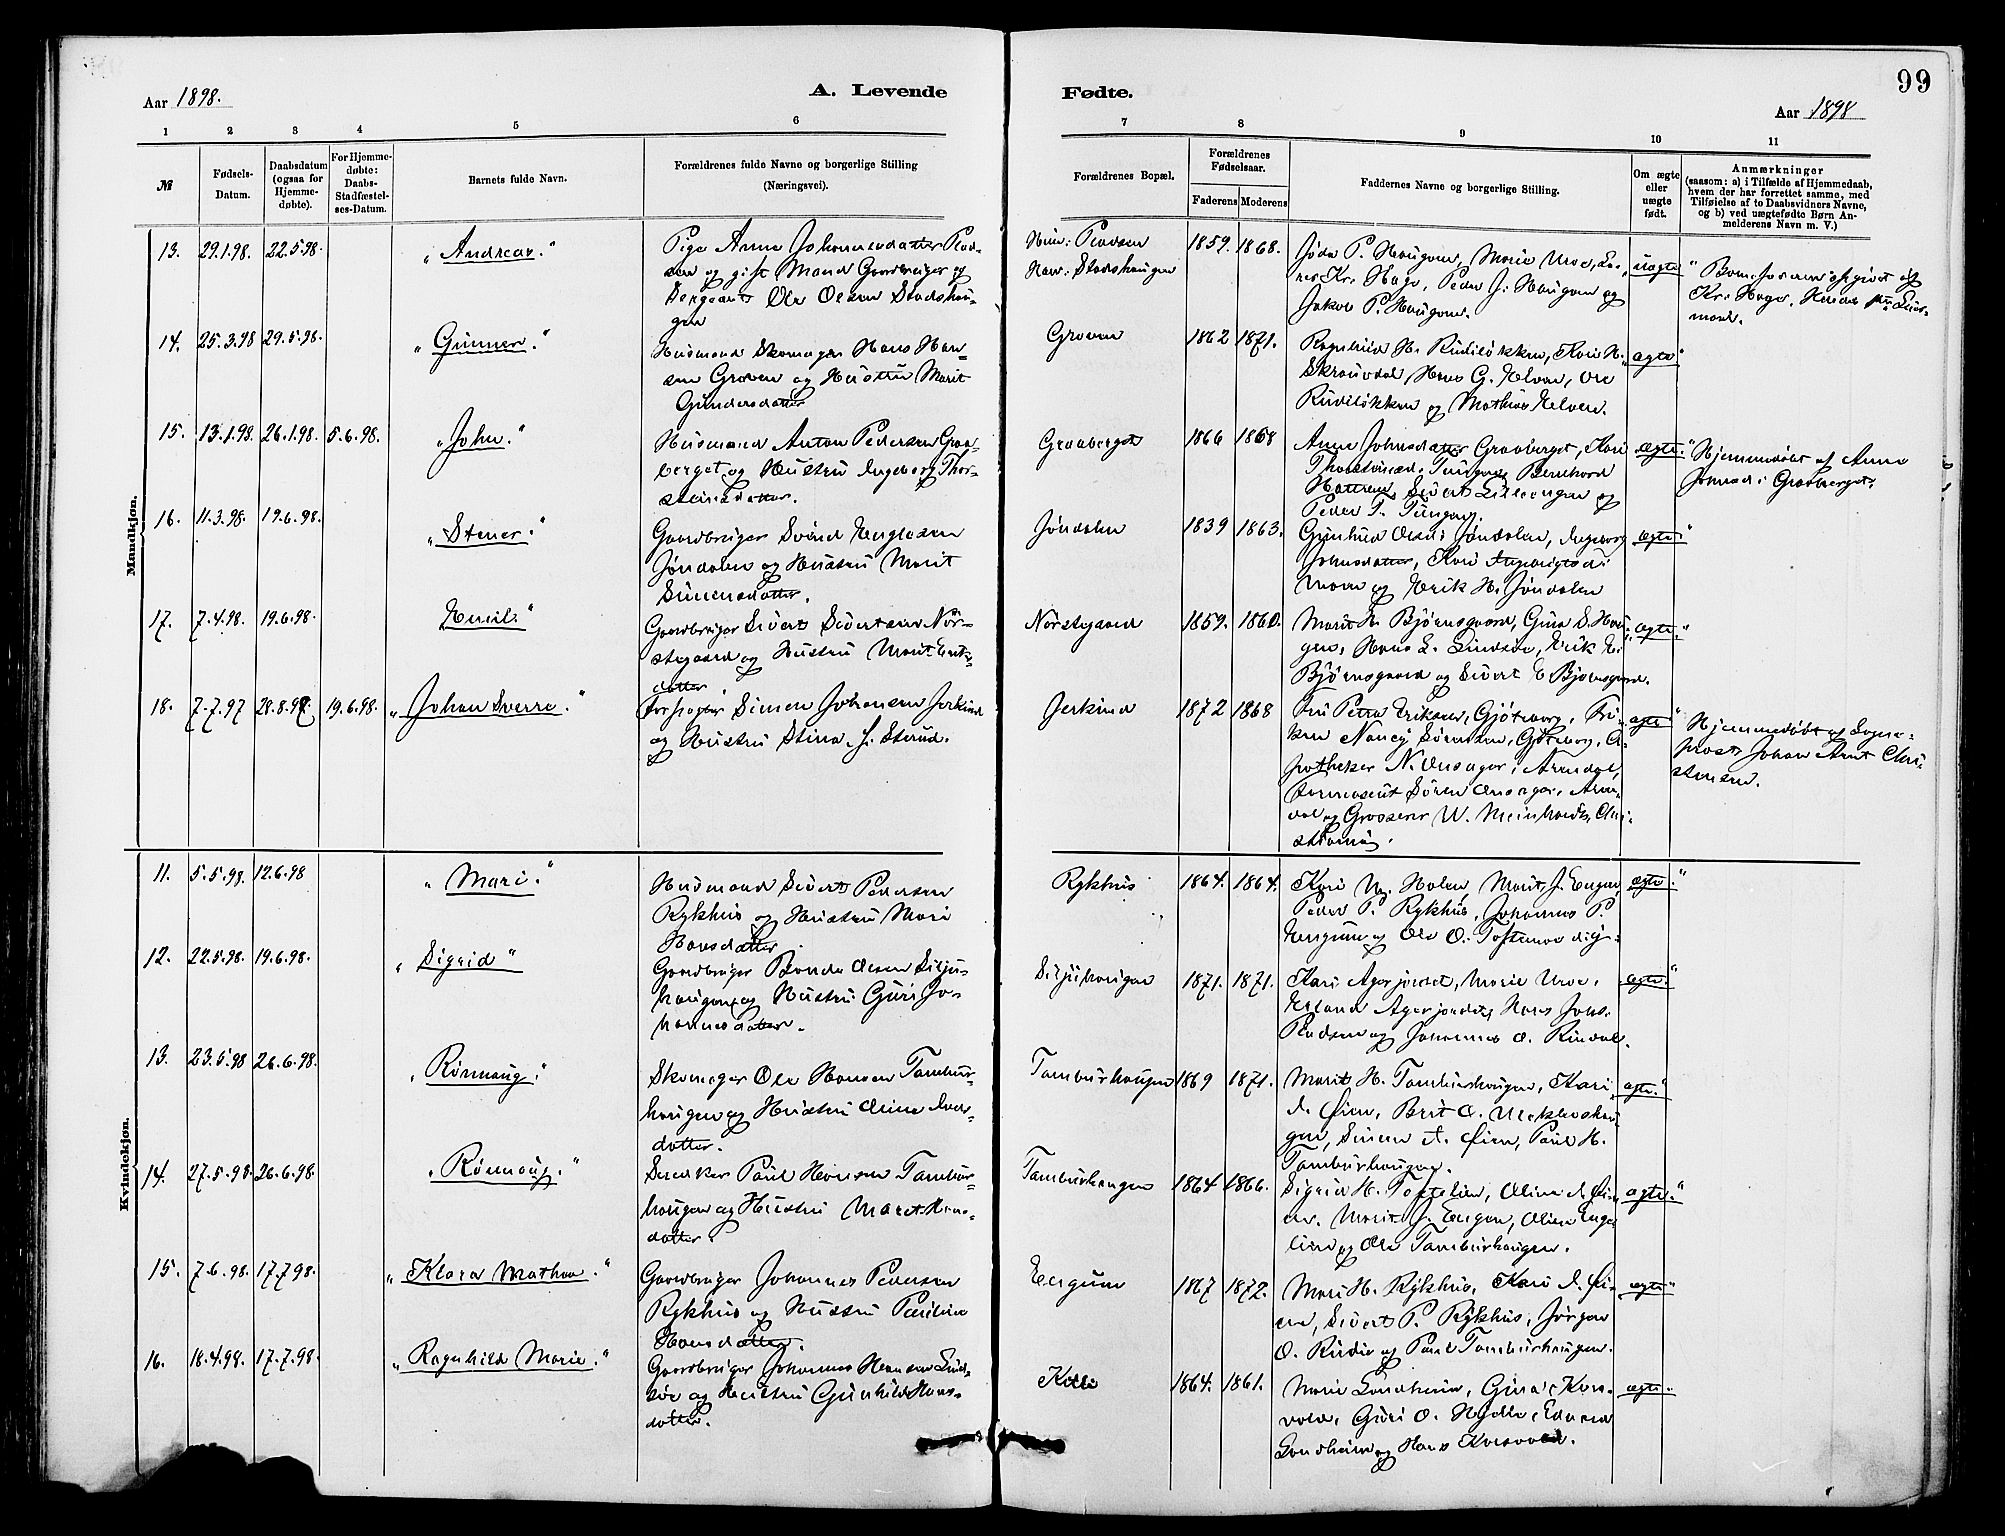 99
Aar 1898.
A. Levende
Fødte.
Aar 1898
1 2 3 4 5 6
7 8 9 10 11
№
Fødsels-
Datum.
Daabsdatum
(ogsaa for
Hjemme-
døbte).
For Hjemme-
døbte:
Daabs-
Stadfæstel-
ses-Datum.
Barnets fulde Navn.
Forældrenes fulde Navne og borgerlige Stilling
(Næringsvei).
Forældrenes Bopæl.
Forældrenes
Fødselsaar.
Faderens Moderens
Faddernes Navne og borgerlige Stilling.
Om ægte
eller
uægte
født.
Anmærkninger
(saasom: a) i Tilfælde af Hjemmedaab,
hvem der har forrettet samme, med
Tilføielse af to Daabsvidners Navne,
og b) ved uægtefødte Børn An-
melderens Navn m. V.)
Mandkjøn.
13. 29.1.98. 22.5.98. „Andreas.“
Pige Anne Johannesdatter Plad-
sen og gift Mand Gaardbruger og
Sergeant Ole Olsen Stadshau-
gen
Pladsen
Stadshaugen
1859. 1868.
P. Haugen, Marie Moe,
Kr. Hage, Peder J. Haugen og
Jakob P. Haugen.
„uægte“
Kr. Hage.
14. 25.3.98 29.5.98. „Gunner.“
Husmand Skomager Hans Han-
sen Groven og Hustru Marit
Gundersdatter
Groven
1862 1871.
Ragnhild H. Rudiløkken, Kari H.
Skrauvdal, Hans G. Elven, Ole
Rudiløkken og Mathias Elven.
„ægte“
15. 13.1.98. 26.1.98. 5.6.98. „John.“
Husmand Anton Pedersen Graa-
berget og Hustru Ingeborg Thor-
steinsdatter.
Graaberget
1866 1868
Anne Johnsdatter Graaberget, Kari
Bernhard
Sivert Lilleengen og
Peder T. Tungen.
„ægte.“
Hjemmedøbt af Anne
Johnsd. Graaberget.
16. 11.3.98. 19.6.98. „Stener.“
Gaardbruger Svend Engelsen
Jøndalen og Hustru Marit
Simensdatter.
Jøndalen
1839 1863.
Gunhild Olsd. Jøndalen, Ingeborg
Johnsdatter, Kari Ingebrigtsd.
Moen og Erik H. Jøndalen
„ægte“
17. 7.4.98. 19.6.98. „Emil.“
Gaardbruger Sivert Sivertsen Nør-
stegaard og Hustru Marit Erik-
datter
Nørstegaard
1859. 1860.
Marit H. Bjørnsgaard, Gina S. Hau-
gen, Hans L. Lindsøe, Erik E.
Bjørnsgaard og Sivert E. Bjørnsgaard.
„ægte.“
18. 7.7.97 28.8.97. 19.6.98. „Johan Sverre.“
Forpagter Simen Johansen Jerkind
og Hustru Stina f. Sterud.
Jerkind
1872 1868
Fru Petra Eriksen, Gjøteborg, Frø-
ken Nancy Sørensen, Gøteborg, A-
potheker N. Unsager, Arendal,
Søren Unsager, Aren-
dal og Grosserer W. Meinhardt, Chri-
stiania.
„ægte“
Hjemmedøbt af Sogne-
prest Johan Arnt Chri-
stensen.
Kvindekjøn.
11. 5.5.98. 12.6.98 „Mari.“
Husmand Sivert Pedersen
Rykhus og Hustru Mari
Hansdatter.
Rykhus
1864. 1864.
Kari N. Holen, Marit J. Engen,
Peder P. Rykhus, Johannes P.
Engum og Ole O. Toftemo
„ægte.“
12. 22.5.98. 19.6.98. „Sigrid“
Gaardbruger Bonde Olsen Silju-
haugen og Hustru Guri Jo-
hannesdatter.
Siljuhaugen
1871. 1871.
Kari Agerjordet, Marie Moe,
Erland Agerjordet, Hans Johs.
Pladsen og Johannes O. Rindal.
„ægte.“
13. 23.5.98 26.6.98. „Rønnaug.“
Skomager Ole Hansen Tambur-
haugen og Hustru Oline Ivers-
datter.
Tamburhaugen
1869 1871.
Marit H. Tamburhaugen, Kari
I. Øien, Brit O.
Simen A. Øien, Paul H.
Tamburhaugen.
„ægte.“
14. 27.5.98. 26.6.98. „Rønnaug.“
Snedker Paul Hansen Tambur-
haugen og Hustru Marit Hans-
datter.
Tamburhaugen
1864 1866.
Sigrid H. Toftelien, Oline I. Øi-
en, Marit J. Engen, Oline Enge-
lien og Ole Tamburhaugen.
„ægte.“
15. 7.6.98. 17.7.98. „Klara Mathea.“
Gaardbruger Johannes Pedersen
Rykhus og Hustru Pauline
Hansdatter.
Engum
1867 1872.
Mari H. Rykhus, Kari I. Øi-
en, Sivert P. Rykhus, Jørgen
O. Rudi og Paul Tamburhaugen.
„ægte“
16. 18.4.98. 17.7.98. „Ragnhild Marie.“
Gaardbruger Johannes Hansen Lind-
søe og Hustru Gunhild Hans-
datter.
Kille
1864. 1861.
Marie Londheim, Gina Kors-
vold, Guri O. Hjelle, Edvard
Londheim og Hans Korsvold.
„ægte“